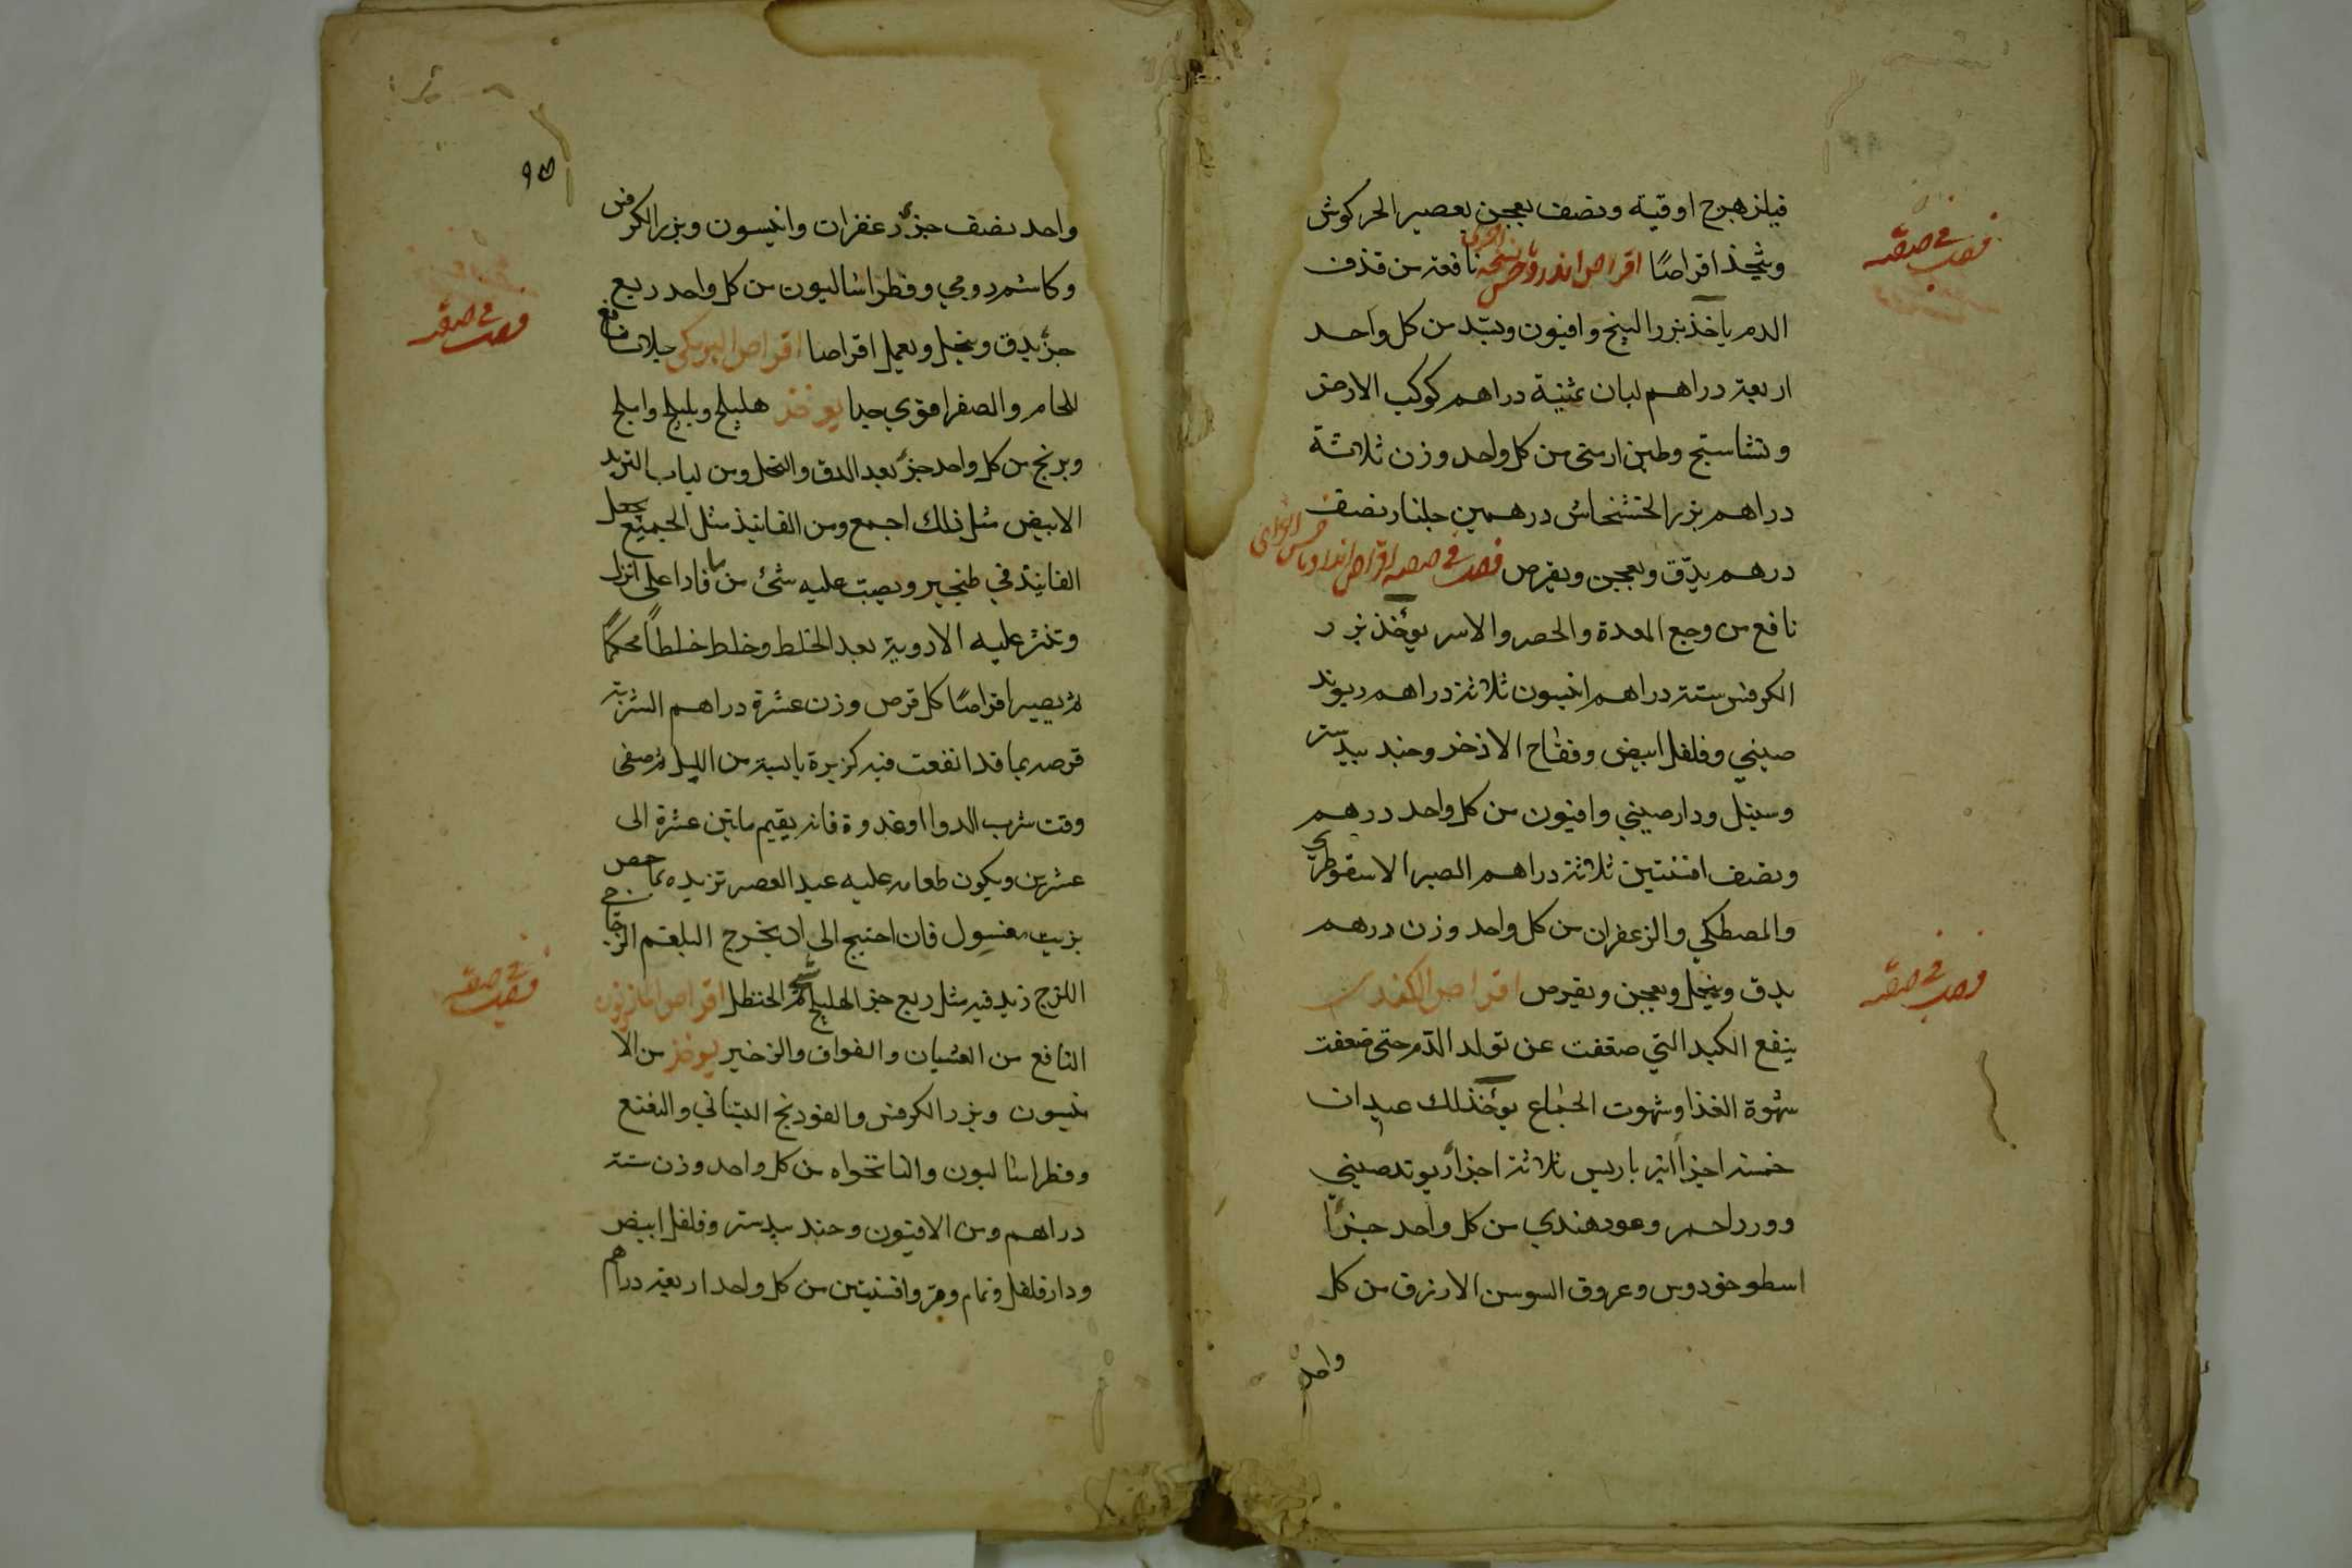 فيلزهرج اوقية ونصف يعجن بعصير الحركوش
ويتخذ اقراصًا اقراص اندروخس نسخة اخرى نافعة من قذف
الدم ياخذ بزر البنج وافيون وبسد من كل واحد
اربعة دراهم لبان ثمنية دراهم كوكب الارض
ونشاستج وطين ارمني من كل واحد وزن ثلاثة
دراهم بزر الخشخاش درهمين جلنار نصف
درهم يدق ويعجن ويقرص فصل في صفة اقراص
نافع من وجع المعدة والحصر والاسر يؤخذ بزر
الكرفس ستة دراهم انيسون ثلاثة دراهم ريوند
صيني وفلفل ابيض وفقاح الاذخر وجند بيدستر
وسنبل ودارصيني وافيون من كل واحد درهم
ونصف افسنتين ثلاثة دراهم الصبر الاسقوطري
والمصطكي والزعفران من كل واحد وزن درهم
يدق وينخل ويعجن ويقرص اقراص
ينفع الكبد التي ضعفت عن تولد الدم حتى ضعفت
شهوة الغذا وشهوت الجماع يؤخذ لك عيدان
خمسة اجزا انبرباريس ثلاثة اجزا ريوند صيني
وورد احمر وعود هندي من كل واحد جزأ
اسطوخودوس وعروق السوسن الازرق من كل
واحد
فصل في صفة
فصل في صفة
٩٥
واحد نصف جزؤ زعفران وانيسون وبزر الكرفس
وكاشم رومي وفطراساليون من كل واحد ربع
جزؤ يدق وينخل ويعمل اقراصا اقراص البرمكي نافع
للحام والصفرا قوي جدا يوخذ هليلج وبليلج واملج
وبرنج من كل واحد جزؤ بعد الدق والنخل ومن لباب التربد
الابيض مثل ذلك اجمع ومن الفانيذ مثل الجميع يجعل
الفانيذ في طنجير ويصب عليه شئ من ما فاذا غلى انزل
وتنثر عليه الادوية بعد الخلط وخلط خلطاً محكمًا
ثم يصير اقراصًا كل قرص وزن عشرة دراهم الشربة
قرصه بما قد انقعت فيه كزبرة يابسة من الليل ثم صفى
وقت شرب الدوا او غدوة فانه يقيم مابين عشرة الى
عشرين ويكون طعامه عليه عند العصر تزيده بما حمص
بزيت مغسول فان احتيج الى ان يخرج البلغم الزجاجي
اللزج زيد فيه مثل ربع جز الهليلج شحم الحنظل اقراص المازريون
النافع من الغشيان والفواق والزخير يوخذ من الا
نيسون وبزر الكرفس والفودنج البستاني والنعنع
وفطراساليون والنانخواه من كل واحد وزن ستة
دراهم ومن الافيون وجند بيدستر وفلفل ابيض
ودارفلفل ونمام ومر وافسنتين من كل واحد اربعة دراهم
فصل في صفة
فصل في صفة